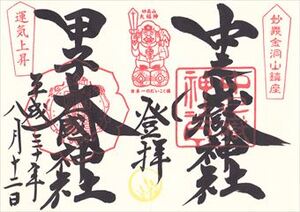 妙義金洞山鎮座
中之嶽神社
登拝
妙義山
大福神
日本一のだいこく様
甲子大國神社
運気上昇
平成三十年
八月十二日